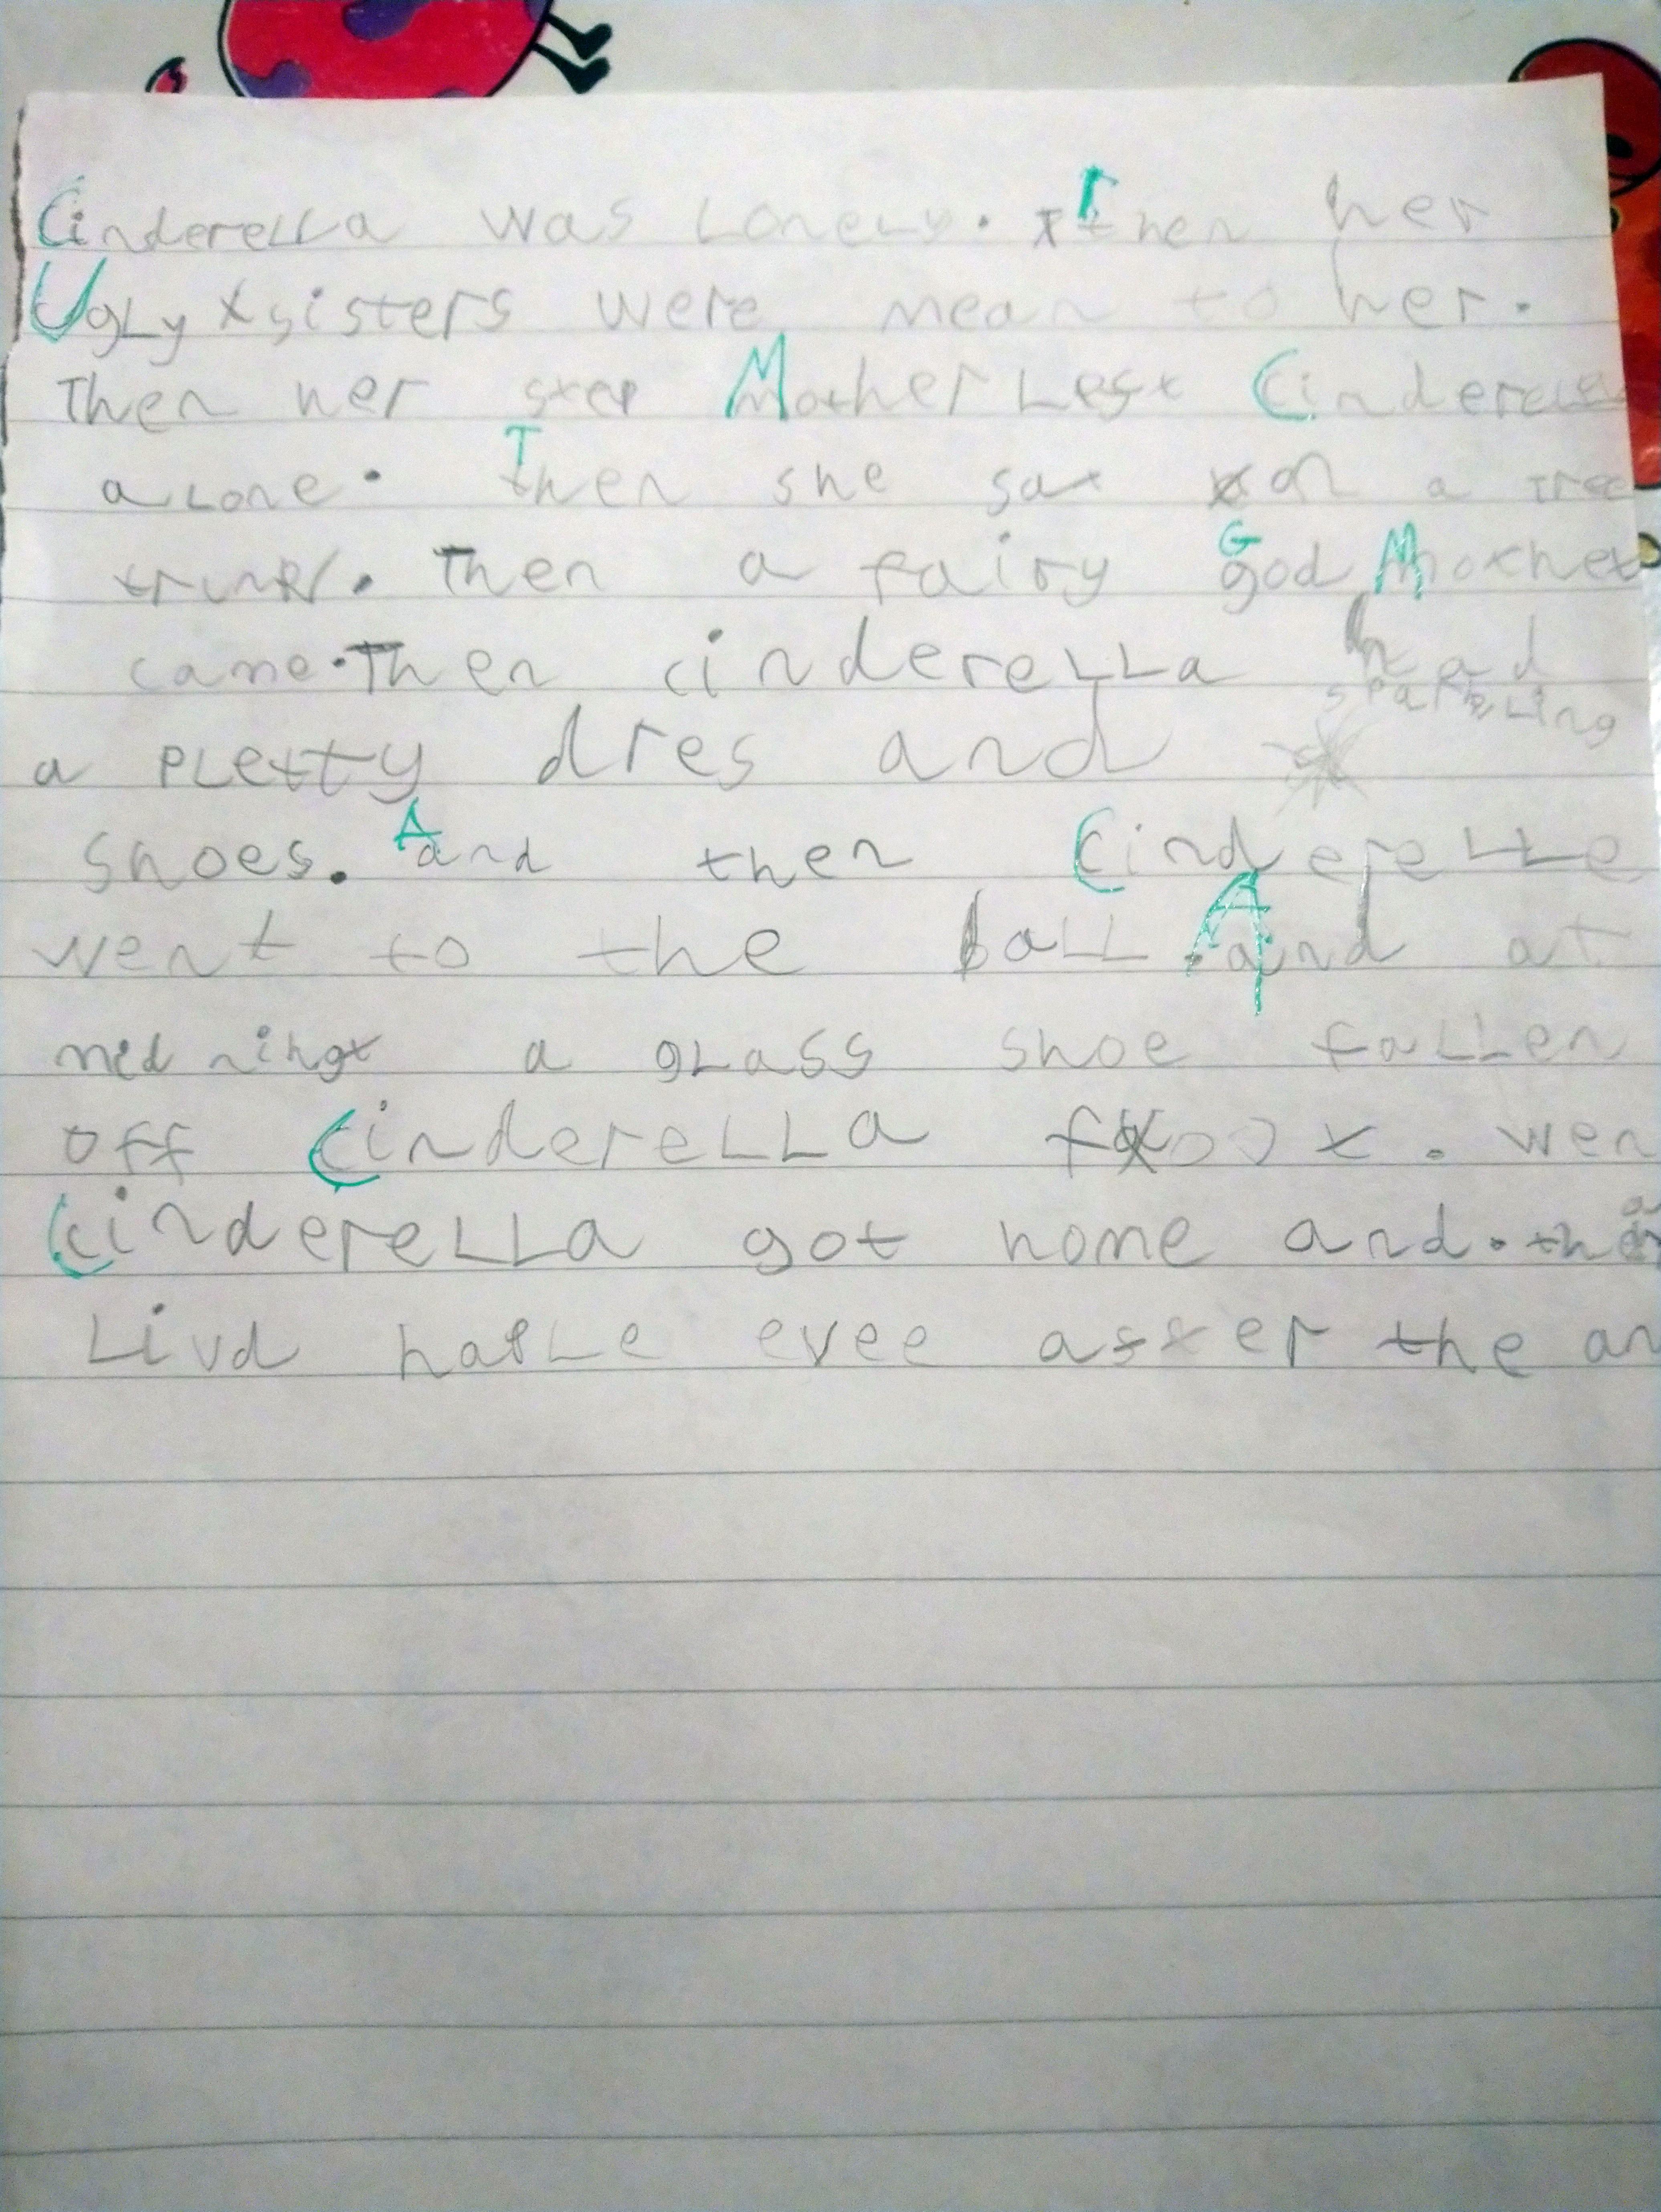 Cinderella was Lonely. Then her
UgLy sisters were mean to her.
Then her step Mother Left Cinderella
aLone. Then she sat on a tree
trunk. Then a fairy God Mother
came. Then cindereLLa had
a pletty dres and sparkeLing
shoes. And then Cinderelle
went to the baLL. And at
mid nihgt a gLass shoe faLLen
off CindereLLa foot. wen
CindereLLa got home and. thea
Livd hapLe evee after the an